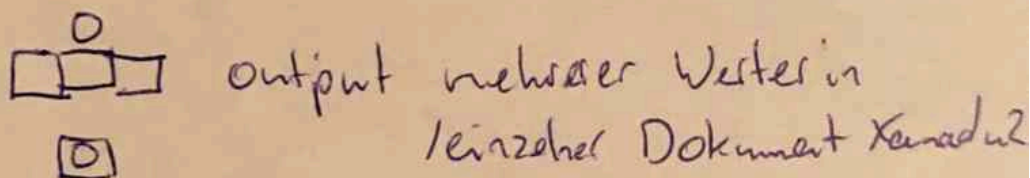 output mehrerer Werter in
/einzelner Dokument Xanadu?